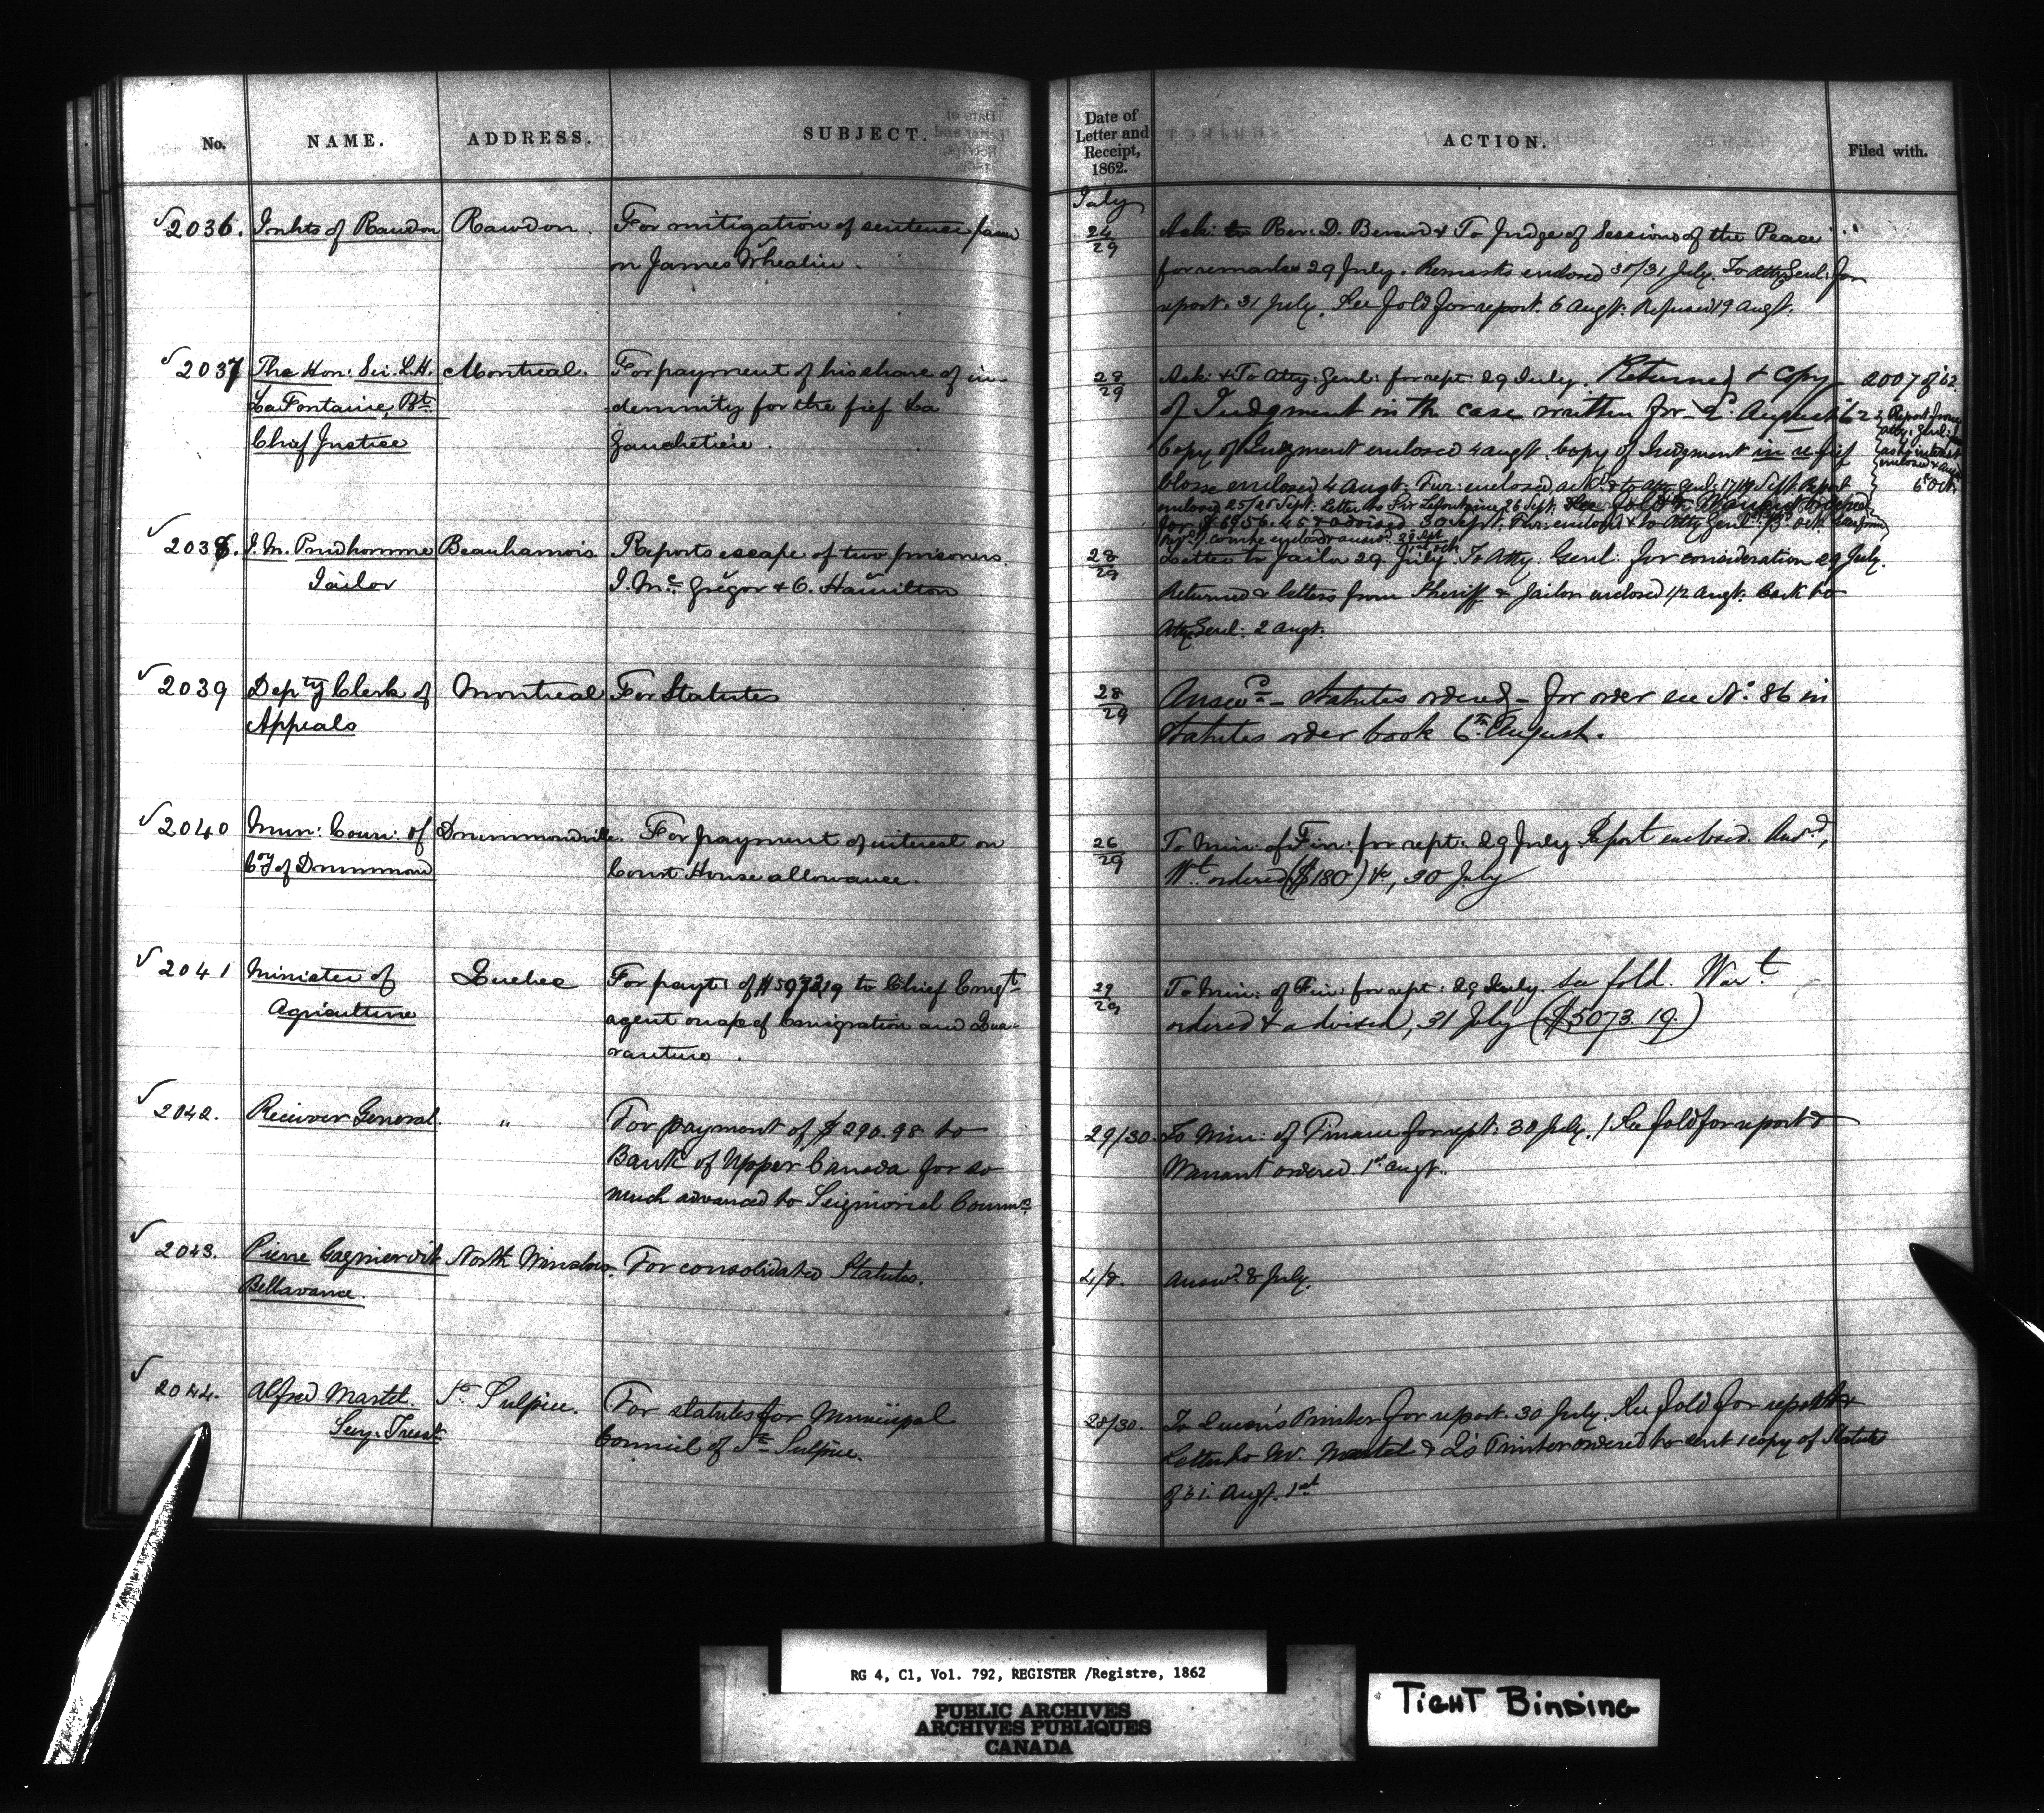 No. NAME. ADDRESS. SUBJECT. Date of Letter and Receipt, 1862. ACTION. Filed with.
July
√2036. Inhts of Rawdon Rawdon. For mitigation of sentence pasd
on James Whealin.
24/29 Ack: to Rev: D. & To Judge of Sessions of the Peace
for remarks 29 July. Remarks enclosed 30/31 July. To Atty Genl: for
report. 31 July. See fold for report. 6 Augt. Refused 19 Augt.
√2037 The Hon: Sir. L.H. Montreal. For payment of his share of in-
LaFontaine, Bt. demnity for the fief La
Chief Justice Gauchetière.
28/29 Ack: & To Atty: Genl: for rept: 29 July. Returned & Copy 2007 of '62.
of Judgment in the case written for 2d. August '62
Copy of Judgment enclosed 4 augt. Copy of Judgment in re fief
Closse enclosed 4 Augt. Fur: enclosed, ackd. & to Atty. Genl: Sept. Report
enclosed 25/26 Sept: Letter to Sir Lafontaine 26 Sept. See fold & Warrant
for $6956.45 & advised 30 Sept. Fur: enclosd & to Atty Genl: Oct.
Report from
Atty: Genl:
as to interest
enclosed & ansd
6 Oct.
√2038. J. M. Prudhomme Beauharnois Reports escape of two prisoners.
Jailor J. Mc. Gregor & C. Hamilton
28/29 Letter to Jailor 29 July. To Atty. Genl: for consideration 29 July.
Returned & letters from Sheriff & Jailor enclosed 1/2 Augt. Back to
Atty Genl: 2 Augt.
√2039 Depty Clerk of Montreal For Statutes
Appeals
28/29 Answd - Statutes ordered - for order see No. 86 in
Statutes order book 6th. August.
√2040 Mun: Coun: of Drummondville. For payment of interest on
Coy of Drummond Court House allowance.
26/29 To Min: of Fin: for rept: 29 July Report enclosed. Ansd,
Wt. ordered ($180) &c, 30 July
√2041 Minister of Quebec For payt: of $5073.19 to Chief Emigt
Agriculture agent on a/c of Emigration and Qua-
rantine.
29/29 To Min: of Fin: for rept: 29 July. see fold. Wart
ordered & advised, 31 July ($5073.19.)
√2042. Receiver General. " For payment of $290.98 to
Bank of Upper Canada for so
much advanced to Seigniorial Commn.
29/30. To Min: of Finance for rept: 30 July. / See fold for report &
Warrant ordered 1st augt.
√2043. Pierre Cagnier dit North Winslow. For consolidated Statutes.
Bellavance.
4/8. Answd. 8 July.
√2044. Alfred Martel. St. Sulpice. For statutes for Municipal
Secy. Treasr. Council of St. Sulpice.
28/30. To Queen's Printer for report. 30 July. See fold for report &
Letter to Mr. Martel & Q's Printer ordered to send 1 copy of Statutes
of 61. Augt. 1st
RG 4, C1, Vol. 792, REGISTER /Registre, 1862
PUBLIC ARCHIVES
ARCHIVES PUBLIQUES
CANADA
TIGHT BINDING